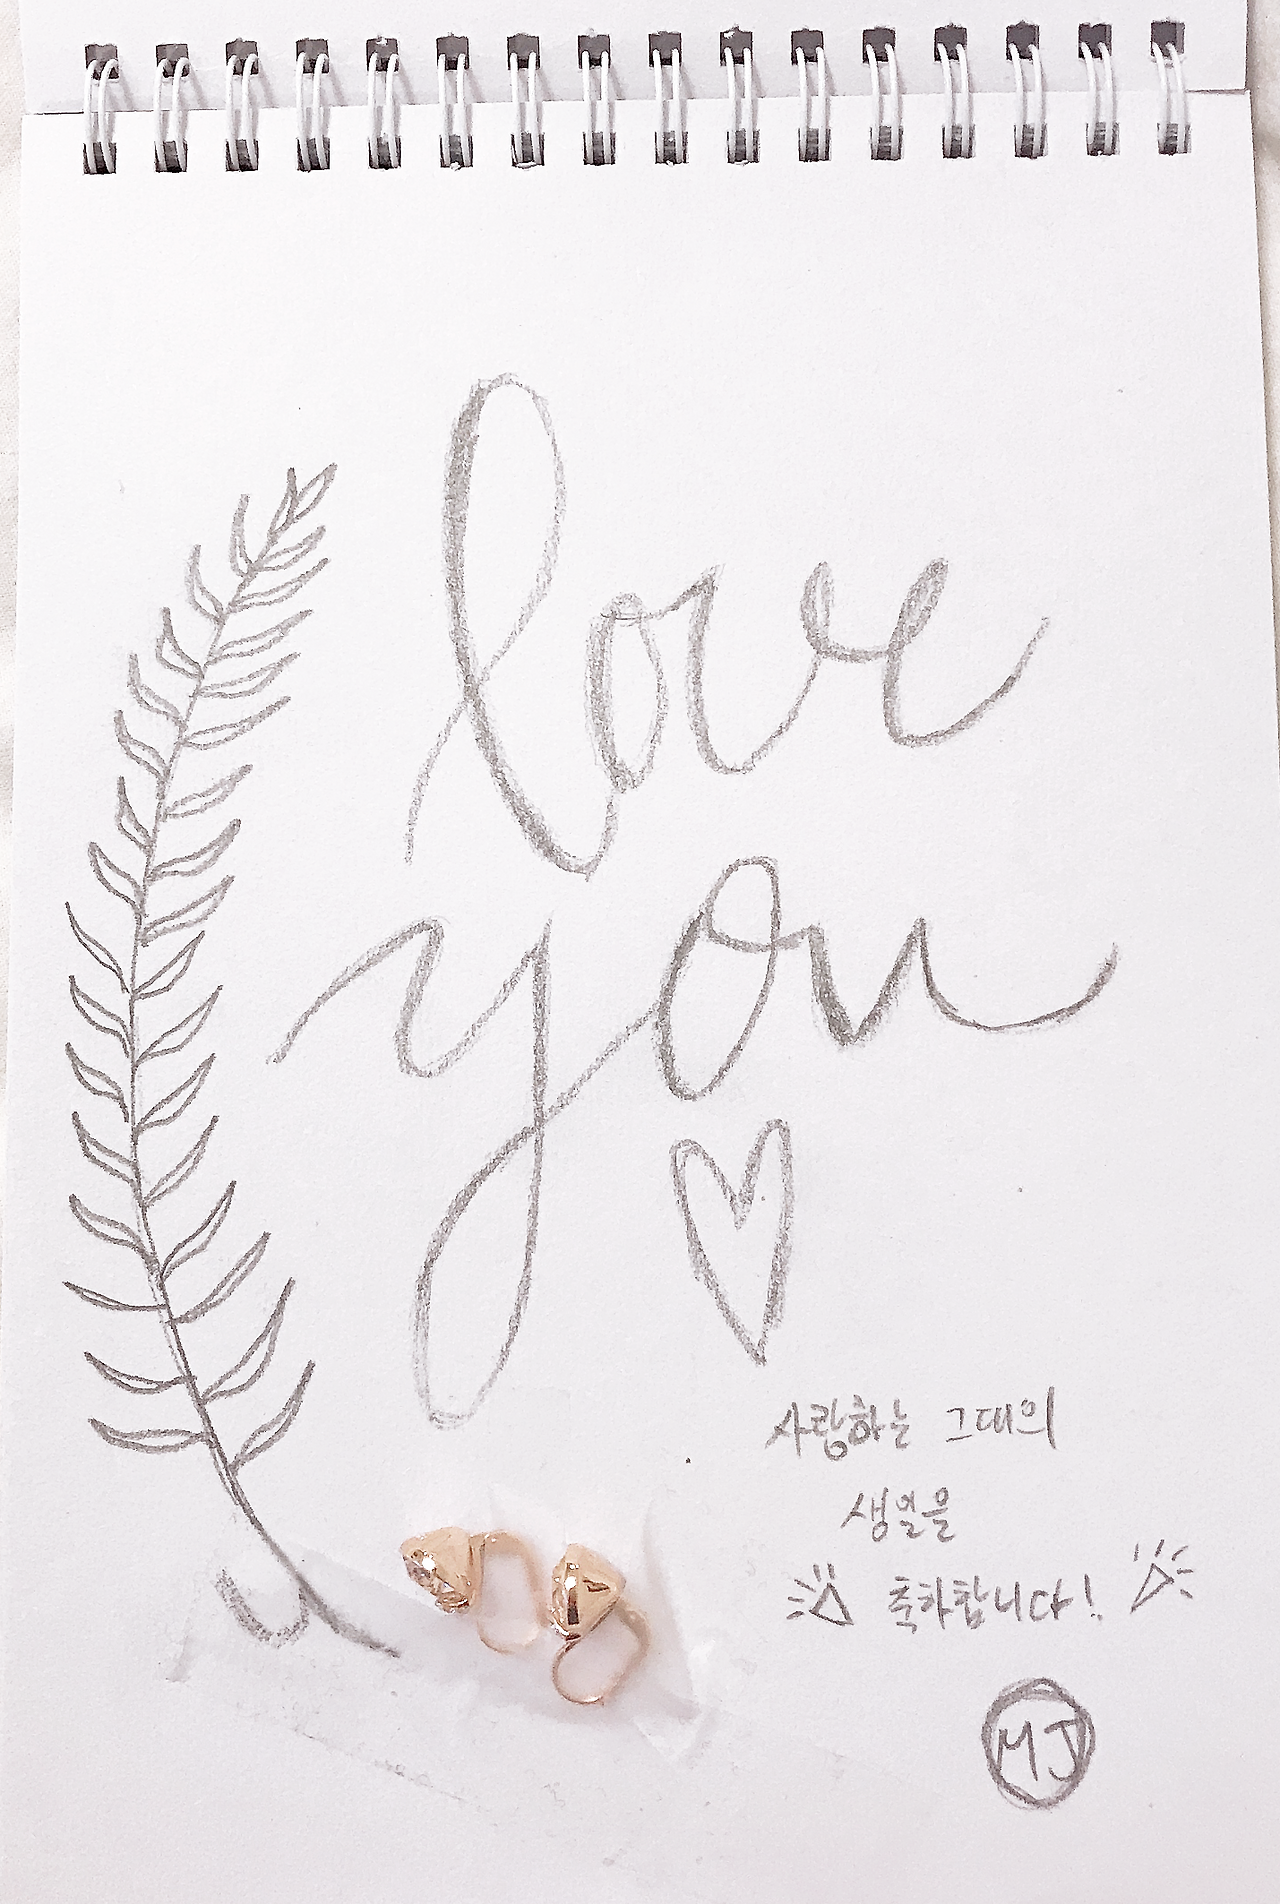 love
you
사랑하는 그대의
생일을
축하합니다!
MJ